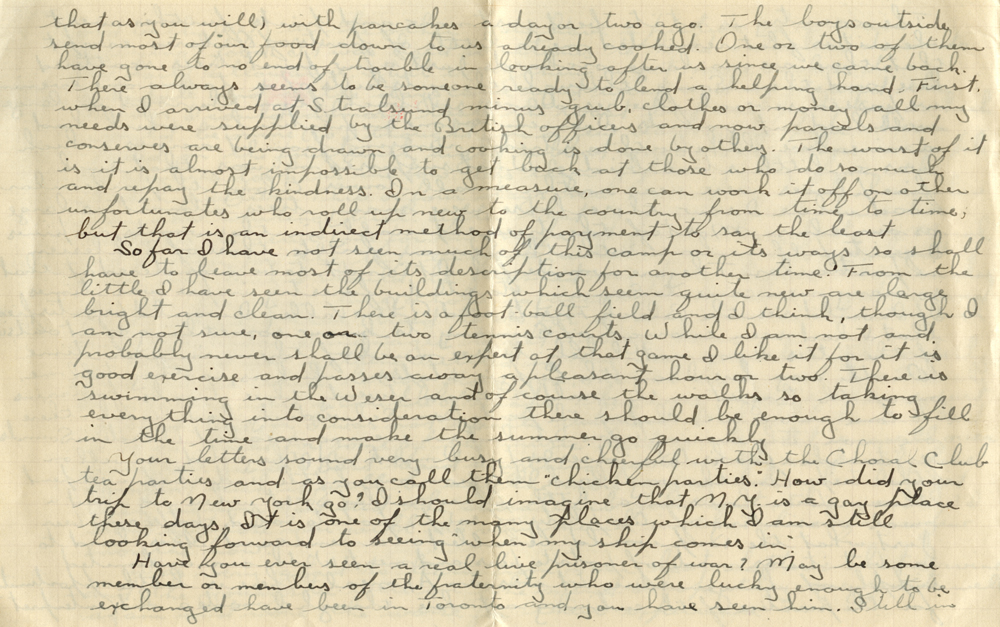 that as you will) with pancakes a day or two ago. The boys outside
send most of our food down to us already cooked. One or two of them
have gone to no end of trouble in looking after us since we came back.
There always seems to be someone ready to lend a helping hand. First,
when I arrived at Stralsund minus grub, clothes or money all my
needs were supplied by the British officers and now parcels and
conserves are being drawn and cooking is done by others. The worst of it
is it is almost impossible to get back at those who do so much
and repay the kindness. In a measure, one can work it off on other
unfortunates who roll up new to the country from time to time;
but that is an indirect method of payment to say the least
So far I have not seen much of this camp or its ways so shall
have to leave most of its description for another time. From the
little I have seen the buildings which seem quite new are large
bright and clean. There is a foot-ball field and I think, though I
am not sure, one or two tennis courts. While I am not and
probably never shall be an expert at that game I like it for it is
good exercise and passes away a pleasant hour or two. There is
swimming in the Weser and of course the walks so taking
everything into consideration there should be enough to fill
in the time and make the summer go quickly
Your letters sound very busy and cheerful with the Choral Club
tea parties and as you call them "chicken parties". How did your
trip to New York go? I should imagine that N.Y. is a gay place
these days. It is one of the many places which I am still
looking forward to seeing "when my ship comes in".
Have you ever seen a real live prisoner of war? May be some
member or members of the fraternity who were lucky enough to be
exchanged have been in Toronto and you have seen him. I still in